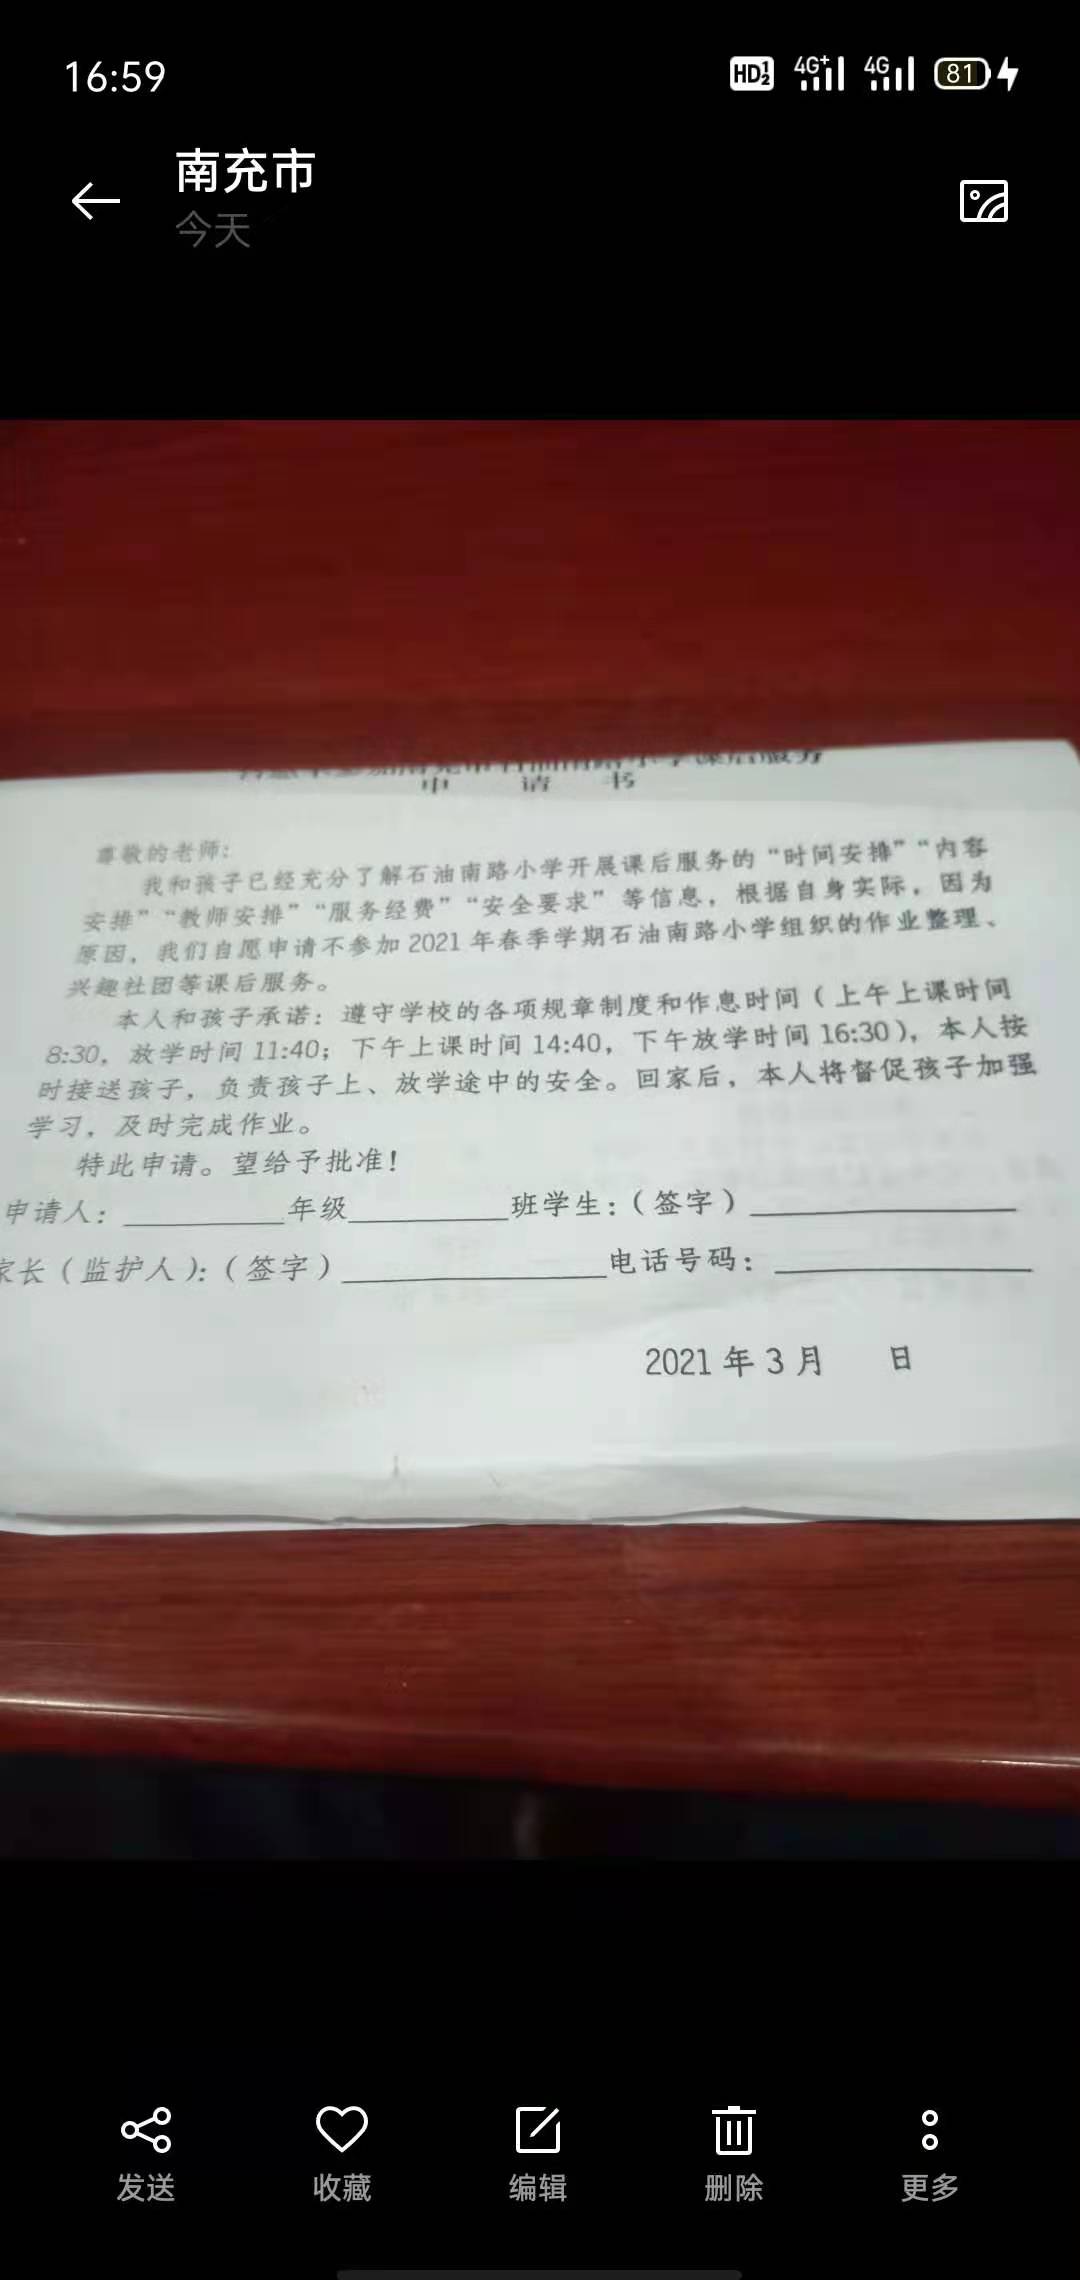 16:59
HD 1 2 4G+ 4G 81
南充市
今天
课后服务
申 请 书
尊敬的老师:
我和孩子已经充分了解石油南路小学开展课后服务的“时间安排”“内容
安排”“教师安排”“服务经费”“安全要求”等信息，根据自身实际，因为
原因，我们自愿申请不参加2021年春季学期石油南路小学组织的作业整理、
兴趣社团等课后服务。
本人和孩子承诺：遵守学校的各项规章制度和作息时间（上午上课时间
8:30，放学时间11:40；下午上课时间14:40，下午放学时间16:30），本人按
时接送孩子，负责孩子上、放学途中的安全。回家后，本人将督促孩子加强
学习，及时完成作业。
特此申请。望给予批准！
申请人：__________年级__________班学生：（签字）________________
家长（监护人）：（签字）________________电话号码：________________
2021年3月 日
发送 收藏 编辑 删除 更多